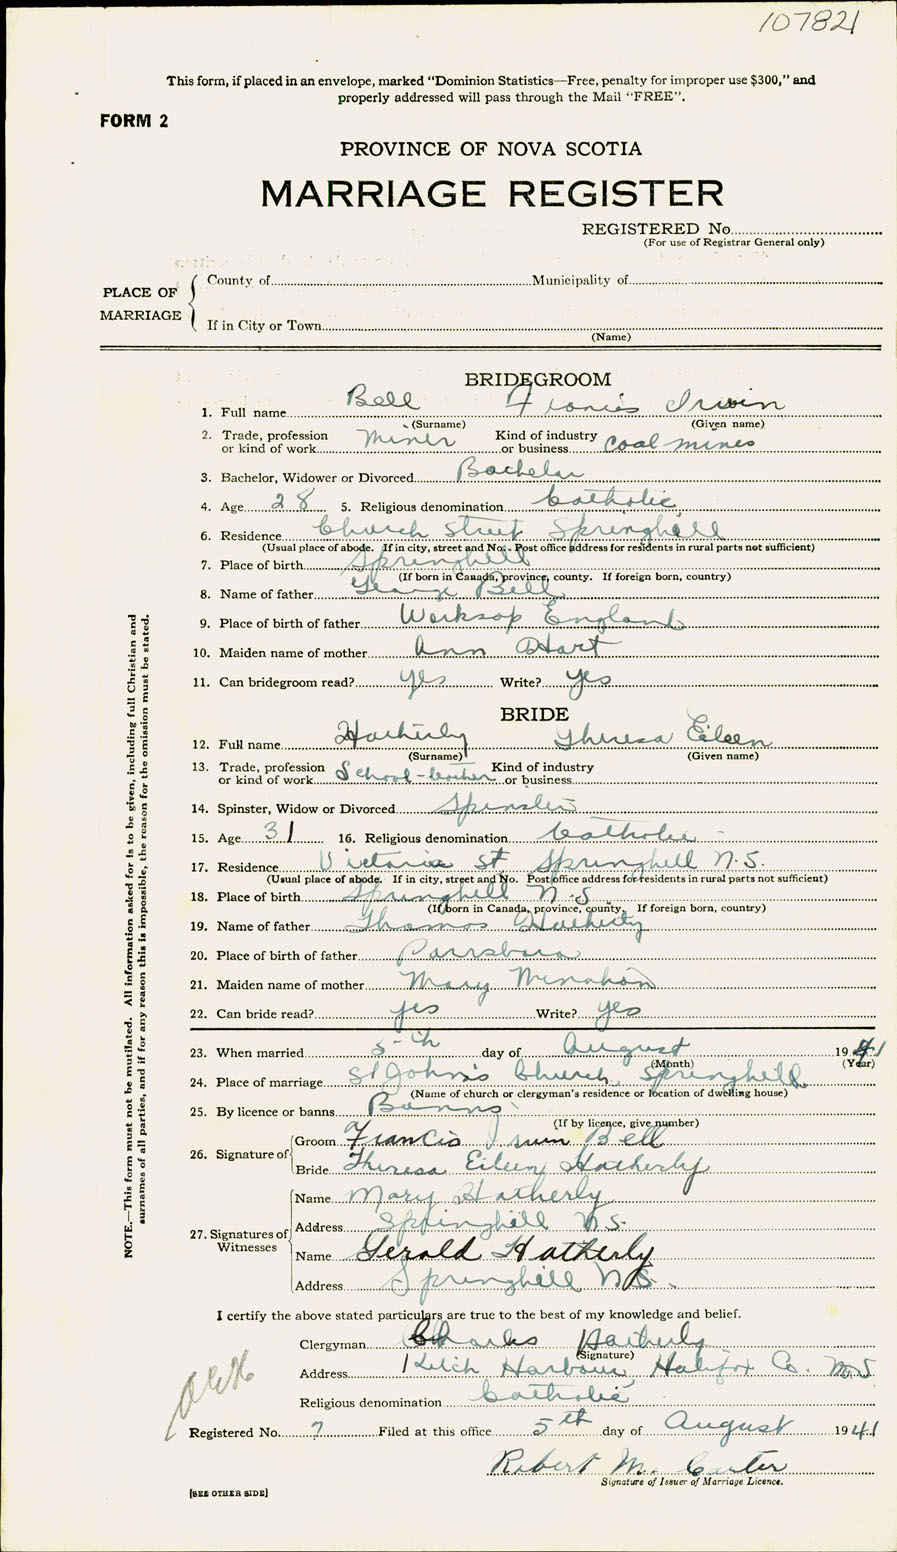 107821
This form, if placed in an envelope, marked "Dominion Statistics—Free, penalty for improper use $300," and
properly addressed will pass through the Mail "FREE".
FORM 2
PROVINCE OF NOVA SCOTIA
MARRIAGE REGISTER
REGISTERED No.
(For use of Registrar General only)
PLACE OF MARRIAGE
County of Municipality of
If in City or Town
(Name)
BRIDEGROOM
1. Full name Bell Francis Irwin
(Surname) (Given name)
2. Trade, profession or kind of work Miner Kind of industry or business Coal mines
3. Bachelor, Widower or Divorced Bachelor
4. Age 28 5. Religious denomination Catholic
6. Residence Church Street Springhill
(Usual place of abode. If in city, street and No. Post office address for residents in rural parts not sufficient)
7. Place of birth Springhill
(If born in Canada, province, county. If foreign born, country)
8. Name of father George Bell
9. Place of birth of father Worksop England
10. Maiden name of mother Ann Hart
11. Can bridegroom read? yes Write? yes
BRIDE
12. Full name Hatherly Theresa Eileen
(Surname) (Given name)
13. Trade, profession or kind of work School-teacher Kind of industry or business
14. Spinster, Widow or Divorced Spinster
15. Age 31 16. Religious denomination Catholic
17. Residence Victoria St. Springhill N.S.
(Usual place of abode. If in city, street and No. Post office address for residents in rural parts not sufficient)
18. Place of birth Springhill N.S.
(If born in Canada, province, county. If foreign born, country)
19. Name of father Thomas Hatherly
20. Place of birth of father Parrsboro
21. Maiden name of mother Mary Minahan
22. Can bride read? yes Write? yes
23. When married 5th day of August 1941
(Month) (Year)
24. Place of marriage St John's Church, Springhill
(Name of church or clergyman's residence or location of dwelling house)
25. By licence or banns Banns
(If by licence, give number)
26. Signature of Groom Francis Irwin Bell
Bride Theresa Eileen Hatherly
27. Signatures of Witnesses
Name Mary Hatherly
Address Springhill N.S.
Name Gerald Hatherly
Address Springhill N.S.
I certify the above stated particulars are true to the best of my knowledge and belief.
Clergyman Charles Hatherly
(Signature)
Address Harbour, Halifax Co. N.S.
Religious denomination Catholic
Registered No. 7 Filed at this office 5th day of August 1941
Robert M. Carter
Signature of Issuer of Marriage Licence.
[SEE OTHER SIDE]
NOTE.—This form must not be mutilated. All information asked for is to be given, including full Christian and
surnames of all parties, and if for any reason this is impossible, the reason for the omission must be stated.